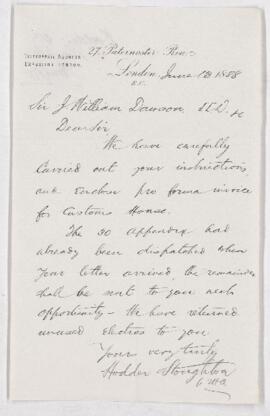 27, Paternoster Row,
London, June 12 1888
E.C.
TELEGRAPHIC ADDRESS
EXPOSITOR LONDON.
Sir J William Dawson. LLD. &c
Dear Sir
We have carefully
carried out your instructions
and enclose pro forma invoice
for Customs House.
The 20 appendix had
already been dispatched when
your letter arrived, the remainder
shall be sent to you next
opportunity – We have returned
unused electros to you
Yours very truly
Hodder Stoughton